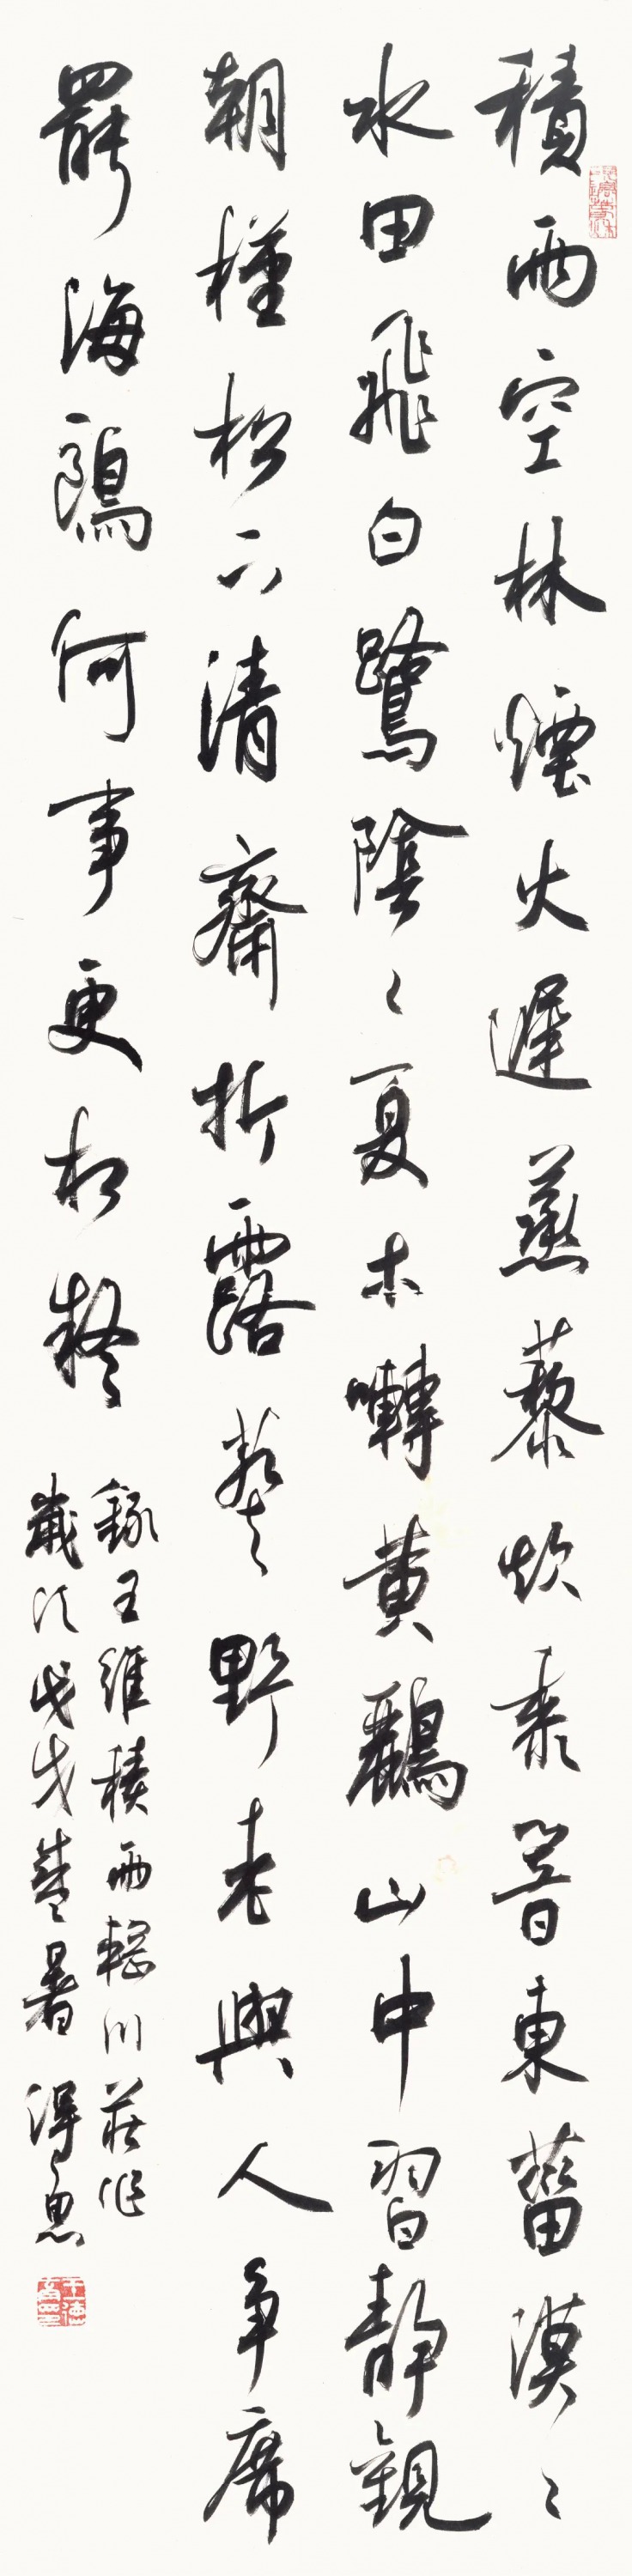 積雨空林煙火遲蒸藜炊黍餉東菑漠〻
水田飛白鷺陰〻夏木囀黄鸝山中習静觀
朝槿松下清齋折露葵野老與人争席
罷海鷗何事更相疑
録王維積雨輞川莊作
歲次戊戌盛暑 得魚